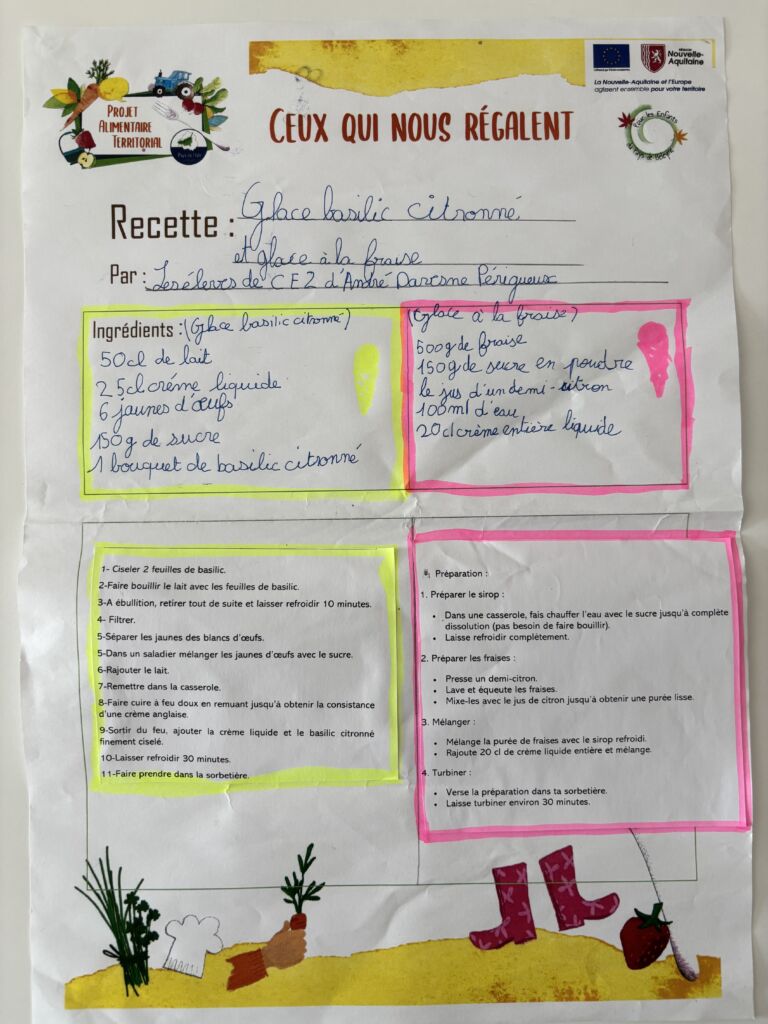 PROJET
ALIMENTAIRE
TERRITORIAL
RÉGION
Nouvelle-
Aquitaine
La Nouvelle-Aquitaine et l'Europe
agissent ensemble pour votre territoire
CEUX QUI NOUS RÉGALENT
Recette : Glace basilic citronné
et glace à la fraise
Par : Les élèves de CE2 d'André Davesne Périgueux
Ingrédients : (Glace basilic citronné)
50cl de lait
25cl crème liquide
6 jaunes d'œufs
150g de sucre
1 bouquet de basilic citronné
(Glace à la fraise)
500g de fraise
150g de sucre en poudre
le jus d'un demi-citron
100ml d'eau
20cl crème entière liquide
1- Ciseler 2 feuilles de basilic.
2-Faire bouillir le lait avec les feuilles de basilic.
3-A ébullition, retirer tout de suite et laisser refroidir 10 minutes.
4- Filtrer.
5-Séparer les jaunes des blancs d'œufs.
5-Dans un saladier mélanger les jaunes d'œufs avec le sucre.
6-Rajouter le lait.
7-Remettre dans la casserole.
8-Faire cuire à feu doux en remuant jusqu'à obtenir la consistance
d'une crème anglaise.
9-Sortir du feu, ajouter la crème liquide et le basilic citronné
finement ciselé.
10-Laisser refroidir 30 minutes.
11-Faire prendre dans la sorbetière.
Préparation :
1. Préparer le sirop :
• Dans une casserole, fais chauffer l'eau avec le sucre jusqu'à complète
dissolution (pas besoin de faire bouillir).
• Laisse refroidir complètement.
2. Préparer les fraises :
• Presse un demi-citron.
• Lave et équeute les fraises.
• Mixe-les avec le jus de citron jusqu'à obtenir une purée lisse.
3. Mélanger :
• Mélange la purée de fraises avec le sirop refroidi.
• Rajoute 20 cl de crème liquide entière et mélange.
4. Turbiner :
• Verse la préparation dans ta sorbetière.
• Laisse turbiner environ 30 minutes.